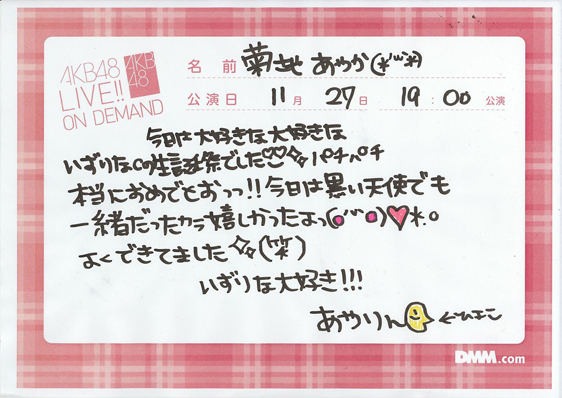 AKB48
LIVE!!
ON DEMAND
AKB
48
名前 菊地あやか(*'''*)
公演日 11月 27日 19:00 公演
今日は大好きな大好きな
いずりなの生誕祭でした パチパチ
本当におめでとおっっ!!今日は黒い天使でも
一緒だったカラ嬉しかったよっ(●'''●)♥*.o
よくできてました(笑)
いずりな大好き!!!
あやりん ←ひよこ
DMM.com